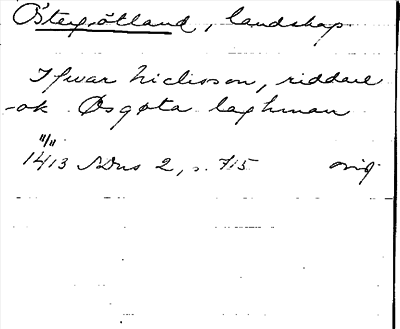 Östergötland, landskap
Ifwar Niclisson, riddare
ok Øsgøta laghman
11/11
1413 SDns 2, s. 715 orig